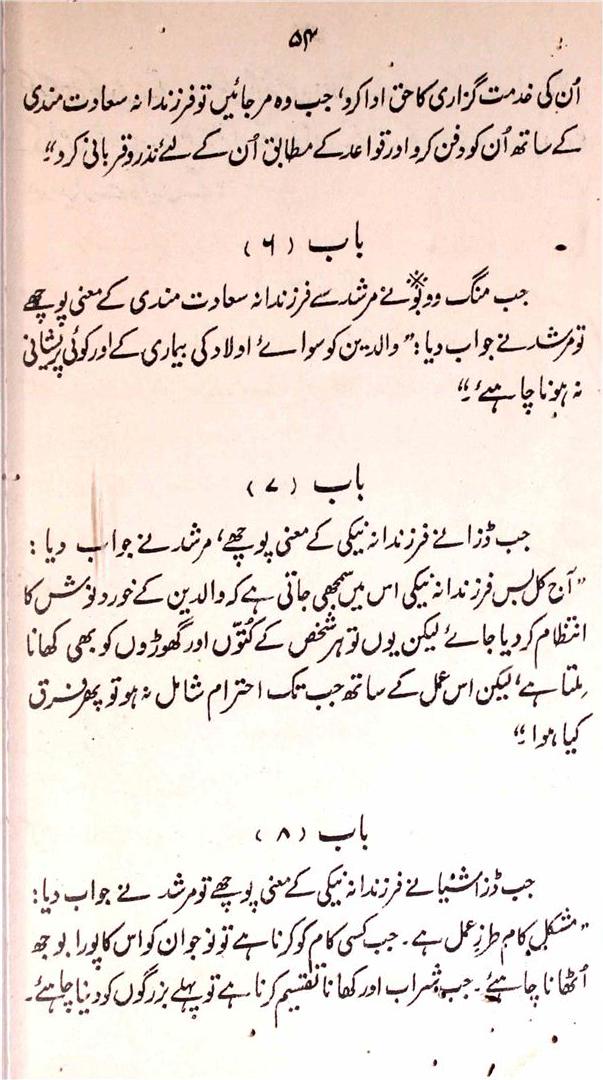 ۵۴
اُن کی خدمت گزاری کا حق ادا کرو، جب وہ مر جائیں تو فرزندانہ سعادت مندی
کے ساتھ اُن کو دفن کرو اور قواعد کے مطابق اُن کے لئے نذر و قربانی کرو“۔
باب (۶)
جب منگ وو بوُ※ نے مرشد سے فرزندانہ سعادت مندی کے معنی پوچھے
تو مرشد نے جواب دیا: ”والدین کو سوائے اولاد کی بیماری کے اور کوئی پریشانی
نہ ہونا چاہئے“۔
باب (۷)
جب ڈزائے فرزندانہ نیکی کے معنی پوچھے، مرشد نے جواب دیا:
”آج کل بس فرزندانہ نیکی اس میں سمجھی جاتی ہے کہ والدین کے خورد و نوش کا
انتظام کر دیا جائے لیکن یوں تو ہر شخص کے کُتّوں اور گھوڑوں کو بھی کھانا
مِلتا ہے، لیکن اس عمل کے ساتھ جب تک احترام شامل نہ ہو تو پھر فرق
کیا ہوا۔“
باب (۸)
جب ڈزاشیائے فرزندانہ نیکی کے معنی پوچھے تو مرشد نے جواب دیا:
”مشکل کام طرزِ عمل ہے۔ جب کسی کام کو کرنا ہے تو نوجوان کو اس کا پورا بوجھ
اُٹھانا چاہئے۔ جب شراب اور کھانا تقسیم کرنا ہے تو پہلے بزرگوں کو دینا چاہئے۔